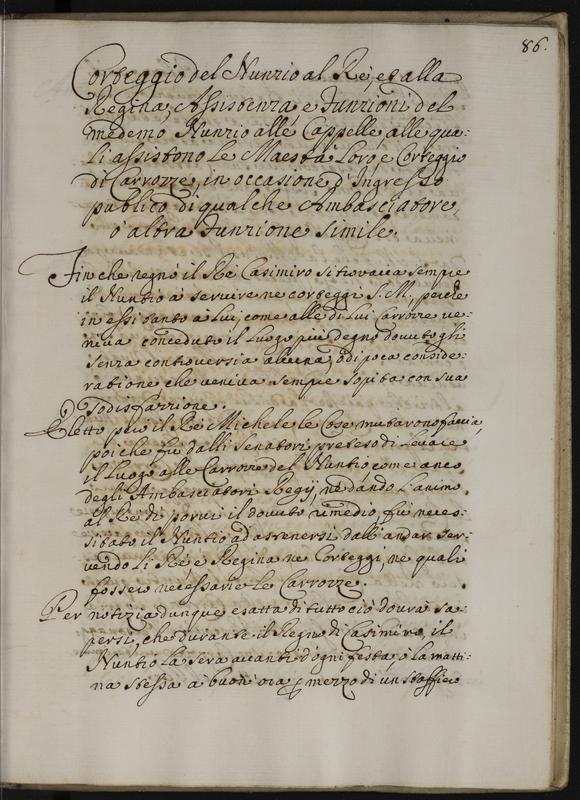 86.
Corteggio del Nunzio al Rè, et alla
Regina, Assistenza e Funzioni del
medemo Nunzio alle Cappelle, alle qua:
li assistono le Maestà Loro, e Corteggio
di Carrozze, in occasione d'Ingresso
publico di qualche Ambasciatore,
ò altra Funzione simile.
Fin che regnò il Rè Casimiro si trovava sempre
il Nuntio à servire ne corteggi S. M., perche
in essi tanto à Lui, come alle di Lui Carrozze ve:
niva conceduto il Luogo più degno dovutogli
senza controversia alcuna, ò di poca conside:
ratione che veniva sempre sopita con sua
sodisfazzione.
Eletto poi il Rè Michele le Cose mutarono faccia,
poiche fù dalli Senatori preteso di levare
il Luogo alle Carrozze del Nuntio come anco
degli Ambasciatori Regij, nè dando l'animo
al Rè di porvi il dovuto rimedio, fù neces:
sitato il Nuntio ad astenersi dall'andar ser:
vendo li Rè e Regina ne Corteggi, ne quali
fossero necessarie le Carrozze.
Per notizia dunque esatta di tutto ciò dovrà sa:
persi, che durante il Regno di Casimiro il
Nuntio la sera avanti d'ogni festa ò la matti:
na stessa à buon'ora p mezzo di un staffiero